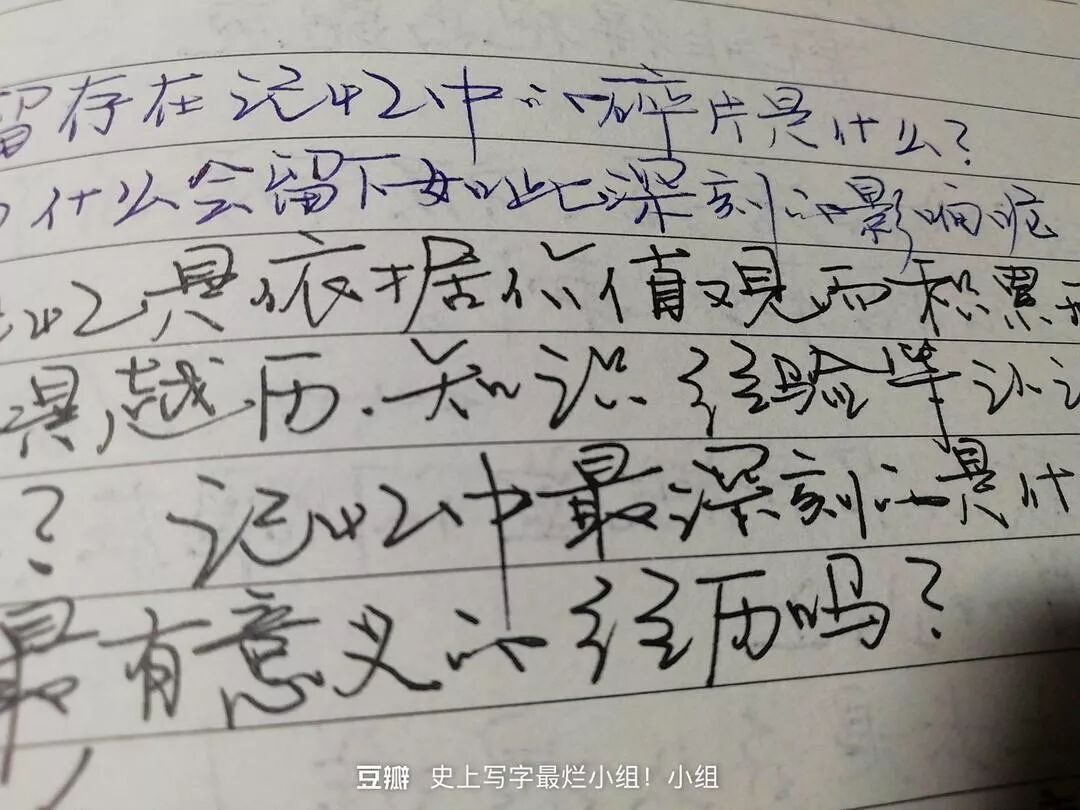 留存在记忆中的碎片是什么？
什么会留下如此深刻的影响呢
忆是依据价值观而积累
是,越历.知识 经验等
？ 记忆中最深刻的是什
最有意义的经历吗？
豆瓣 史上写字最烂小组！小组